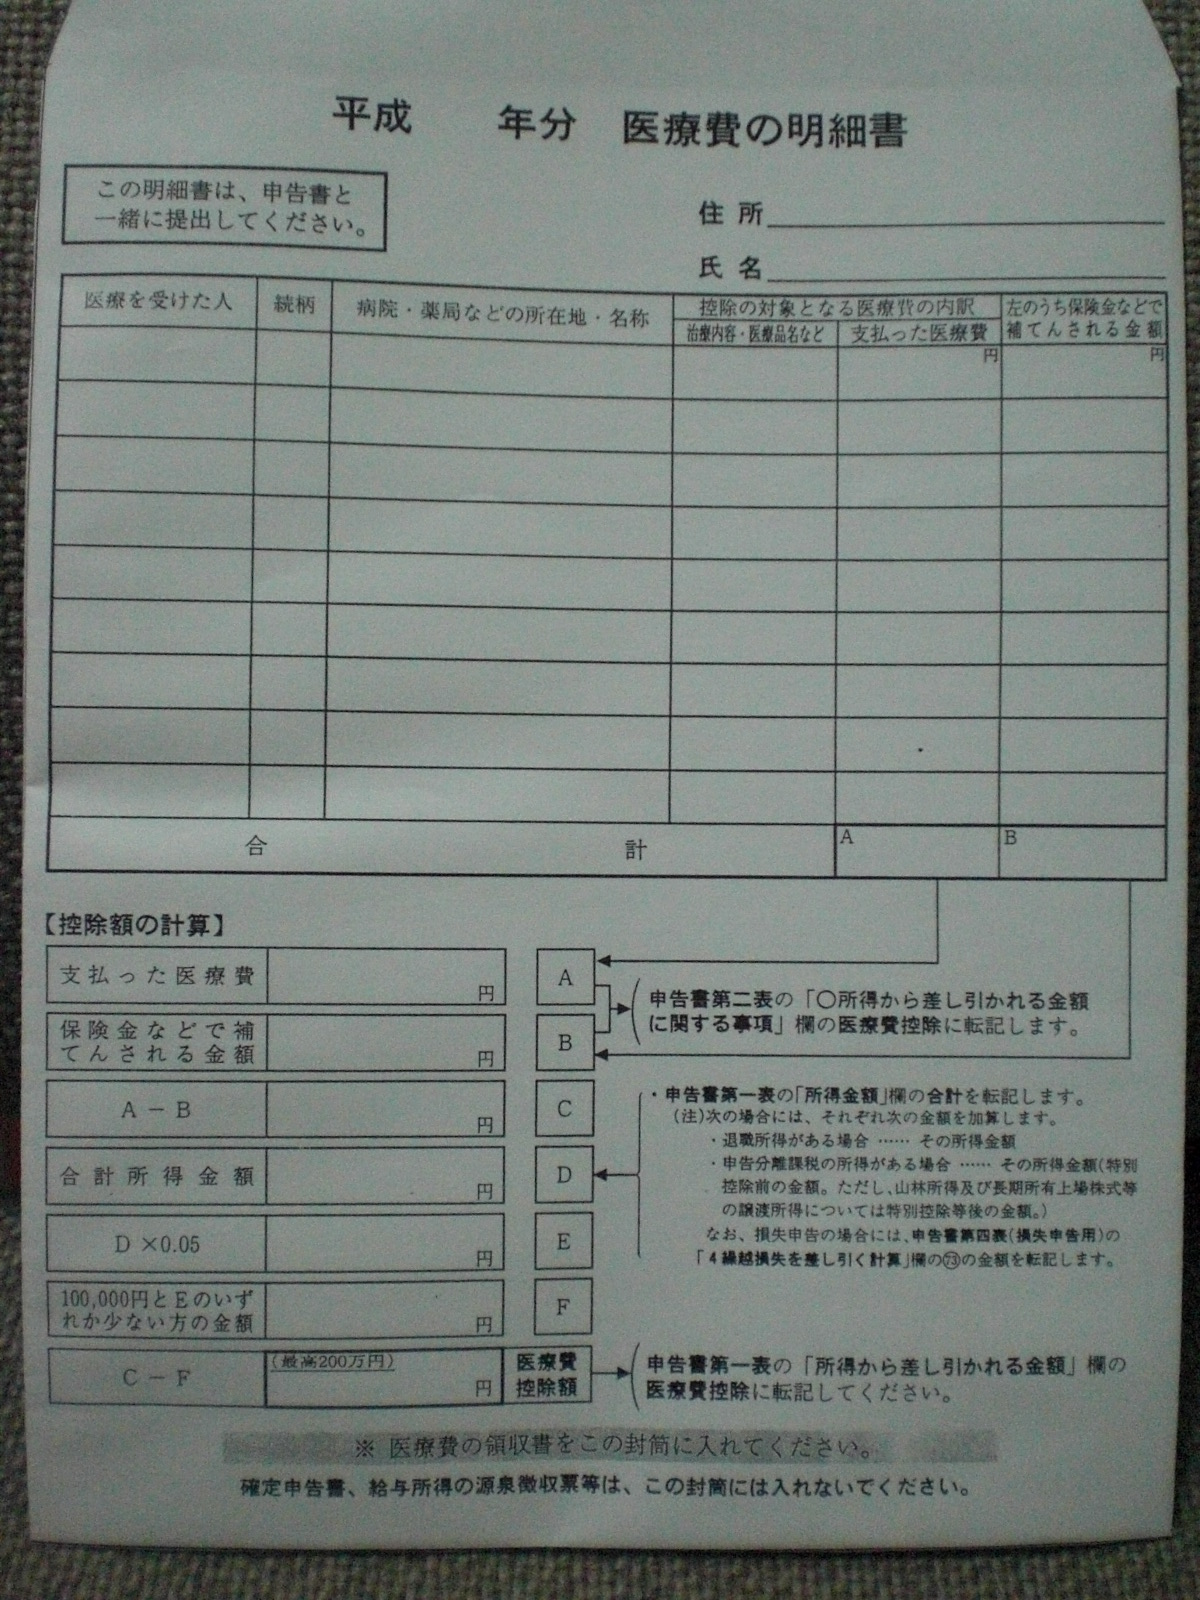 平成　　年分　医療費の明細書
この明細書は、申告書と
一緒に提出してください。
住所
氏名
医療を受けた人
続柄
病院・薬局などの所在地・名称
控除の対象となる医療費の内訳
治療内容・医療品名など
支払った医療費
左のうち保険金などで
補てんされる金額
円
円
合　計
A
B
【控除額の計算】
支払った医療費
円
A
保険金などで補
てんされる金額
円
B
申告書第二表の「〇所得から差し引かれる金額
に関する事項」欄の医療費控除に転記します。
A－B
円
C
合計所得金額
円
D
・申告書第一表の「所得金額」欄の合計を転記します。
(注)次の場合には、それぞれ次の金額を加算します。
・退職所得がある場合 …… その所得金額
・申告分離課税の所得がある場合 …… その所得金額(特別
控除前の金額。ただし、山林所得及び長期所有上場株式等
の譲渡所得については特別控除等後の金額。)
なお、損失申告の場合には、申告書第四表(損失申告用)の
「4繰越損失を差し引く計算」欄の㉃の金額を転記します。
D×0.05
円
E
100,000円とEのいず
れか少ない方の金額
円
F
C－F
(最高200万円)
円
医療費
控除額
申告書第一表の「所得から差し引かれる金額」欄の
医療費控除に転記してください。
※ 医療費の領収書をこの封筒に入れてください。
確定申告書、給与所得の源泉徴収票等は、この封筒には入れないでください。